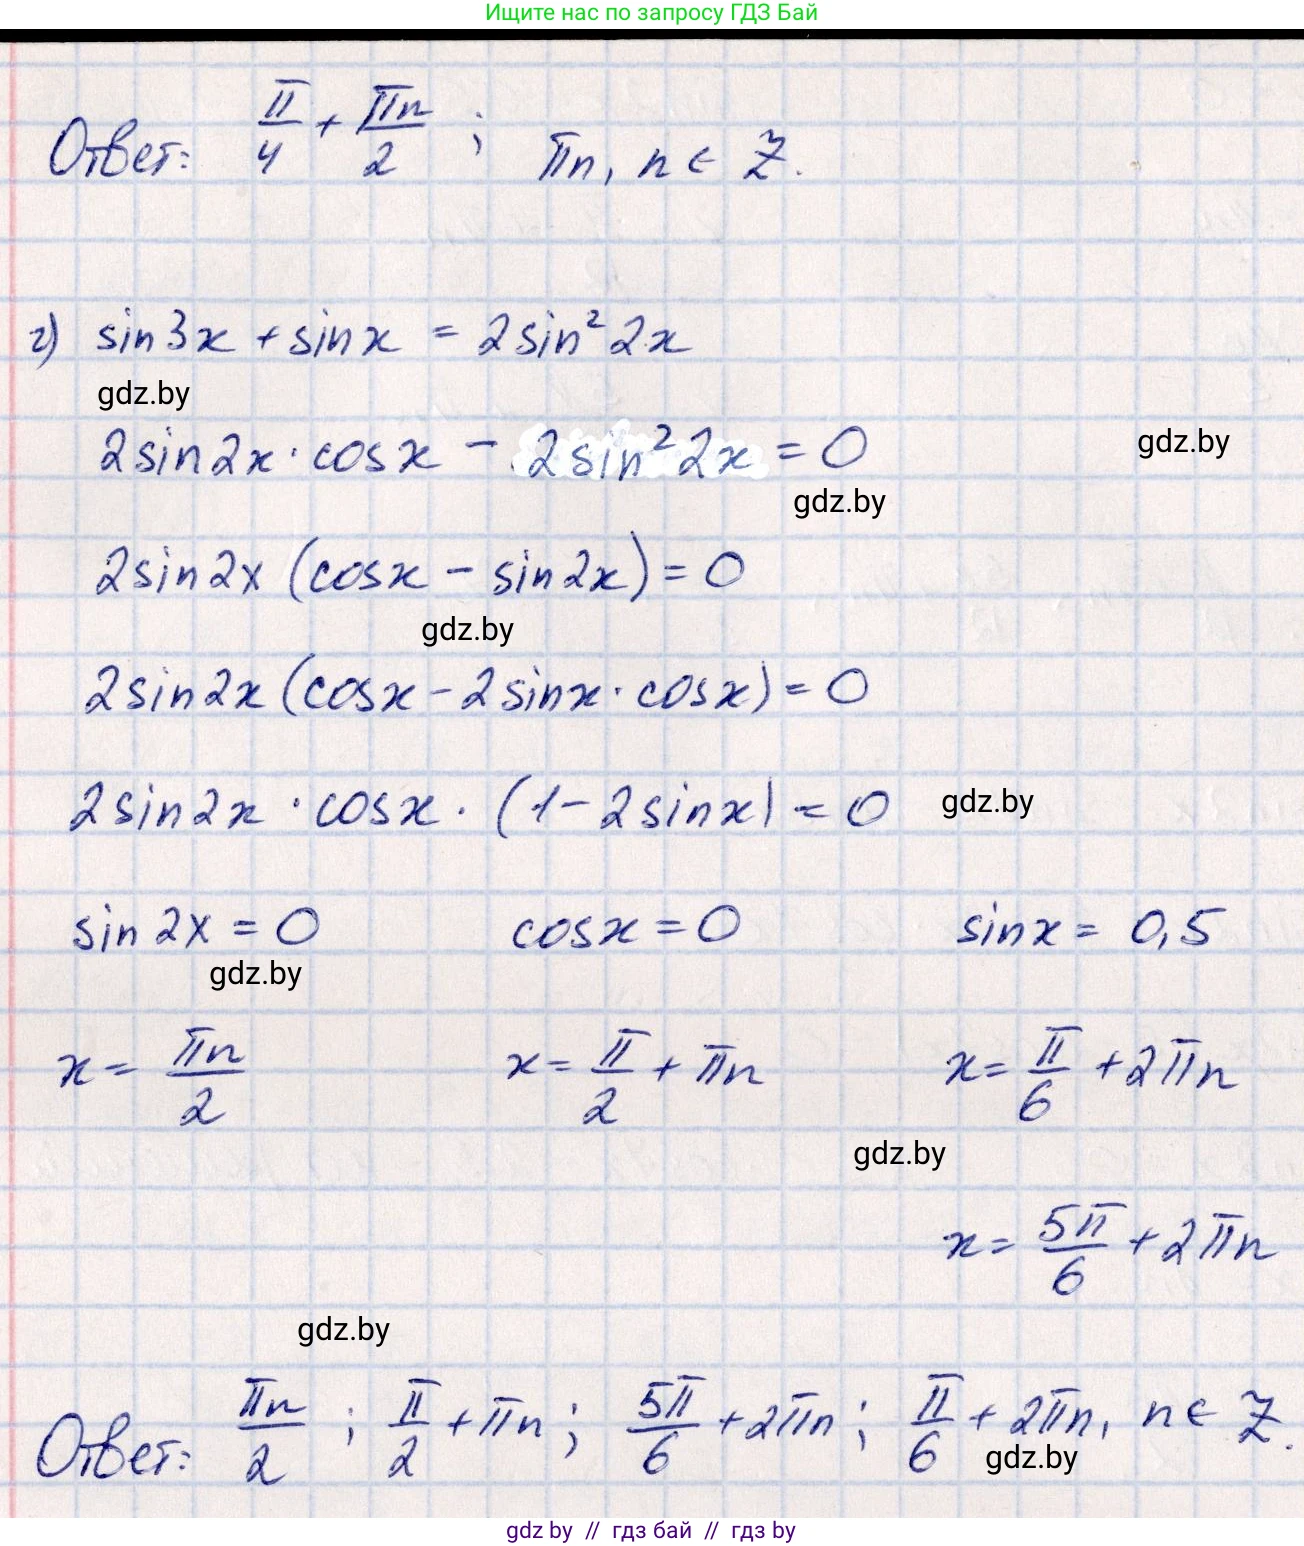 Ищите нас по запросу ГДЗ Бай
Ответ: π/4 + πn/2 ; πn, n ∈ Z.
г) sin3x + sinx = 2sin²2x
gdz.by
2sin2x · cosx − 2sin²2x = 0
gdz.by
gdz.by
2sin2x (cosx − sin2x) = 0
gdz.by
2sin2x (cosx − 2sinx · cosx) = 0
2sin2x · cosx · (1 − 2sinx) = 0
gdz.by
sin2x = 0 cosx = 0 sinx = 0,5
gdz.by
x = πn/2 x = π/2 + πn x = π/6 + 2πn
gdz.by
x = 5π/6 + 2πn
gdz.by
Ответ: πn/2 ; π/2 + πn ; 5π/6 + 2πn ; π/6 + 2πn, n ∈ Z.
gdz.by
gdz by // гдз бай // гдз by